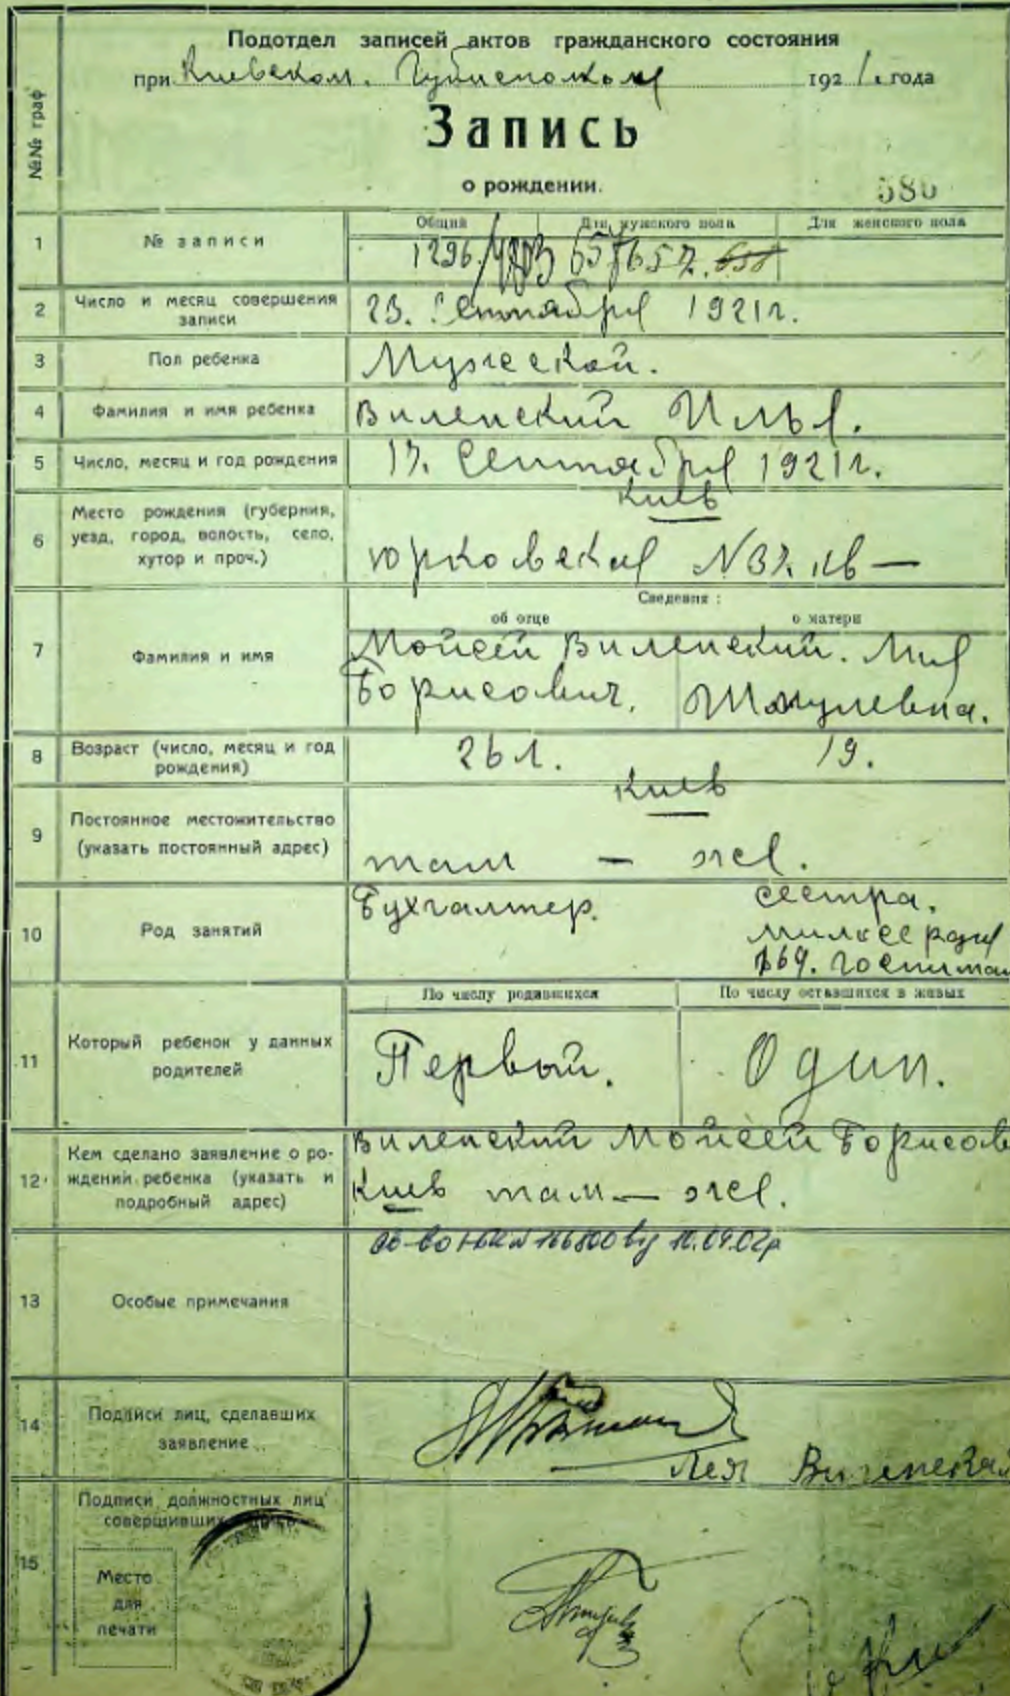 Подотдел записей актов гражданского состояния
при Киевском. Губисполкоме 1921. года
Запись
о рождении.
586
№№ граф
Общий Для мужского пола Для женского пола
1 № записи 1296/ 657. 658
2 Число и месяц совершения
записи
23. Сентября 1921г.
3 Пол ребенка Мужеской.
4 Фамилия и имя ребенка Виленский Илья.
5 Число, месяц и год рождения 17. Сентября 1921г.
6 Место рождения (губерния,
уезд, город, волость, село,
хутор и проч.)
Киев
Юрковская №37. кв —
Сведения :
об отце о матери
7 Фамилия и имя
Мойсей Виленский. Лия
Борисович. Шмулевна.
8 Возраст (число, месяц и год
рождения)
26 л. 19.
9 Постоянное местожительство
(указать постоянный адрес)
Киев
там — же.
10 Род занятий
Бухгалтер. Сестра.
милосердия
169. госпитал
По числу родившихся По числу оставшихся в живых
11 Который ребенок у данных
родителей
Первый. Один.
12 Кем сделано заявление о ро-
ждении ребенка (указать и
подробный адрес)
Виленский Мойсей Борисов
Киев там — же.
13 Особые примечания
від 10.09.02р
14 Подписи лиц, сделавших
заявление
Лея Виленская
15 Подписи должностных лиц
совершивших запись
Место
для
печати